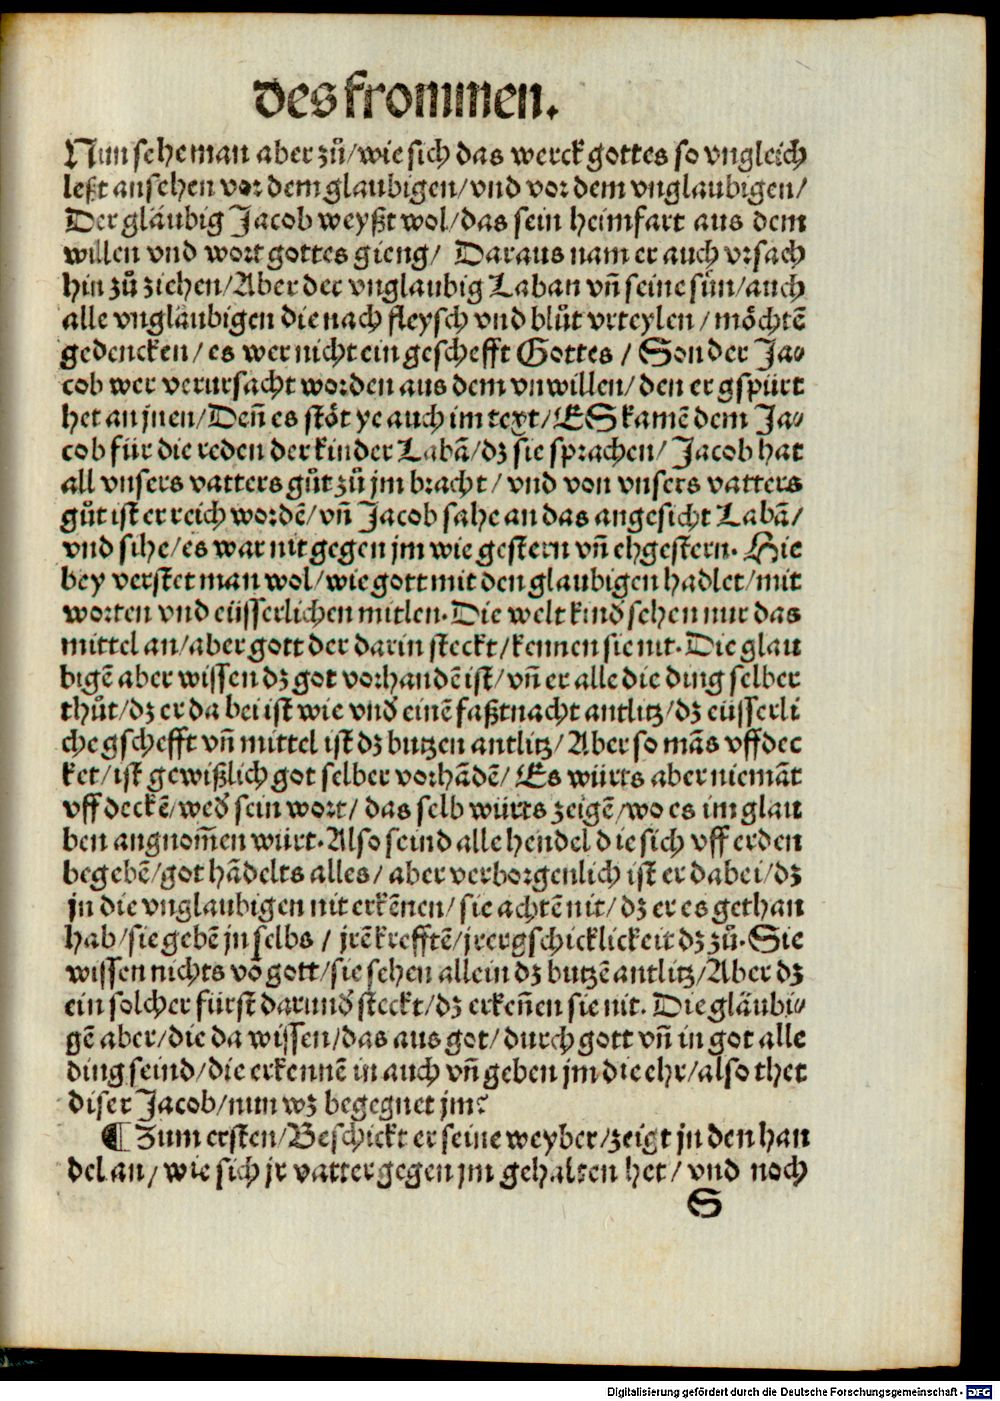 des frommen.
Nun sehe man aber zů/wie sich das werck gottes so vngleich
leßt ansehen vor dem glaubigen/vnd vor dem vnglaubigen/
Der gläubig Jacob weyßt wol/das sein heimfart aus dem
willen vnd wort gottes gieng/ Daraus nam er auch vrsach
hin zů ziehen/Aber der vnglaubig Laban vñ seine sün/auch
alle vngläubigen die nach fleysch vnd blůt vrteylen/möchtē
gedencken/es wer nicht ein geschefft Gottes/Sonder Ja-
cob wer verursacht worden aus dem vnwillen/den er gspürt
het an jnen/Deñ es stöt ye auch im text/ES kamē dem Ja-
cob für die reden der kinder Labā/dz sie sprachen/Jacob hat
all vnsers vatters gůt zů jm bracht/vnd von vnsers vatters
gůt ist er reich wordē/vñ Jacob sahe an das angesicht Labā/
vnd sihe/es war nit gegen jm wie gestern vñ ehgestern. Hie
bey verstet man wol/wie gott mit den glaubigen hadlet/mit
worten vnd eüsserlichen mitlen. Die welt kind sehen nur das
mittel an/aber gott der darin steckt/kennen sie nit. Die glau
bigē aber wissen dz got vorhandē ist/vñ er alle die ding selber
thůt/dz er da bei ist wie vnd einē faßtnacht antlitz/dz eüsserli
che gschefft vñ mittel ist dz butzen antlitz/Aber so māsvffdec
ket/ist gewißlich got selber vorhādē/Es würts aber niemāt
vff deckē/wed sein wort/das selb würts zeigē/wo es im glau
ben angnom̄en würt. Also seind alle hendel die sich vff erden
begebē/got hādelts alles/aber verborgenlich ist er dabei/dz
jn die vnglaubigen nit erkēnen/sie achtē nit/dz er es gethan
hab/sie gebē jn selbs/jrē krefftē/jrer gschicklickeit dz zů. Sie
wissen nichts vō gott/sie sehen allein dz butzē antlitz/Aber dz
ein solcher fürst darund steckt/dz erkeñen sie nit. Die gläubi-
gē aber/die da wissen/das aus got/durch gott vñ in got alle
ding seind/die erkennē in auch vñ geben jm die ehr/also thet
diser Jacob/nun wz begegnet jm?
¶ Zum ersten/Beschickt er seine weyber/zeigt jn den han
del an/wie sich jr vatter gegen jm gehalten het/vnd noch
S
Digitalisierung gefördert durch die Deutsche Forschungsgemeinschaft - DFG